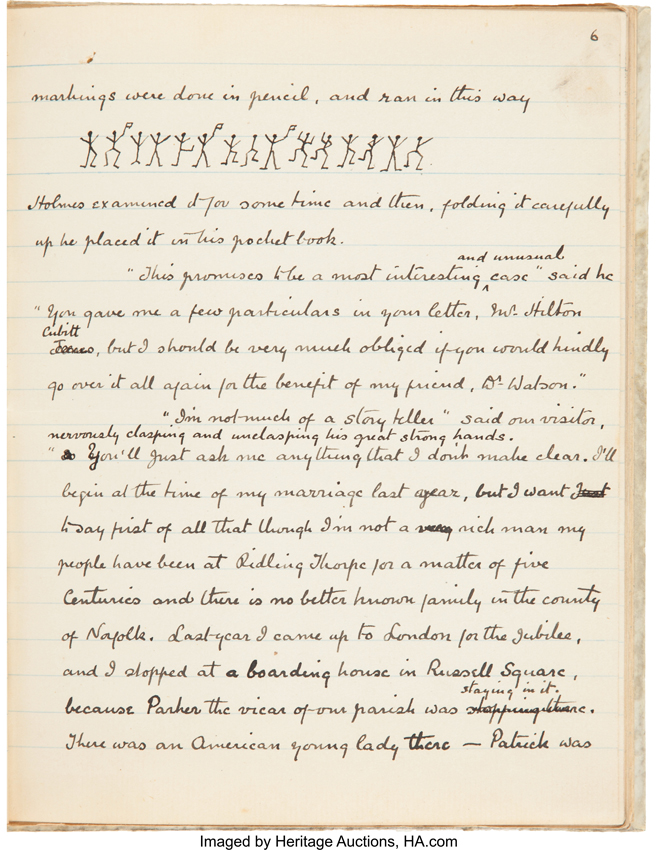 6
markings were done in pencil, and ran in this way
Holmes examined it for some time and then, folding it carefully
up he placed it in his pocket book.
and unusual
"This promises to be a most interesting ‸ case" said he
"You gave me a few particulars in your letter, Mr. Hilton
Cubitt
, but I should be very much obliged if you would kindly
go over it all again for the benefit of my friend, Dr Watson."
"I'm not much of a story teller" said our visitor,
nervously clasping and unclasping his great strong hands.
"You'll just ask me anything that I don't make clear. I'll
begin at the time of my marriage last year, but I want just
to say first of all that though I'm not a very rich man my
people have been at Ridling Thorpe for a matter of five
Centuries and there is no better known family in the county
of Norfolk. Last year I came up to London for the Jubilee,
and I stopped at a boarding house in Russell Square,
staying in it.
because Parker the vicar of our parish was stopping there.
There was an American young lady there — Patrick was
Imaged by Heritage Auctions, HA.com